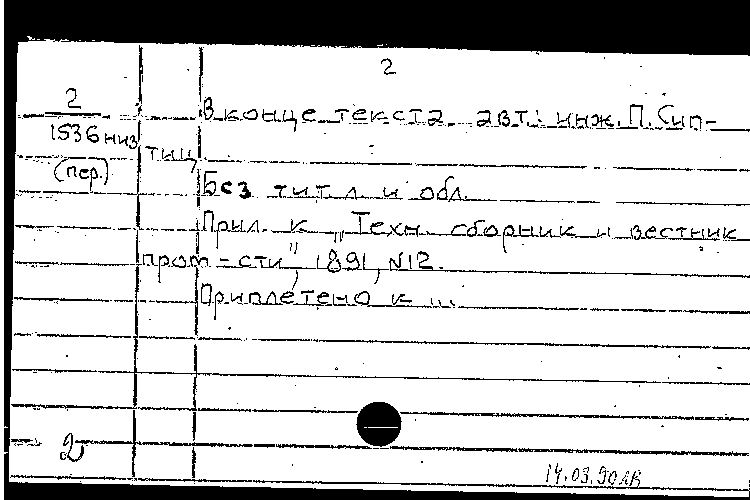 2
2
1536 низ
(пер.)
В конце текста авт.: инж. П. Сип-
тиц
Без тит. л. и обл.
Прил. к „Техн. сборник и вестник
пром-сти", 1891, №12.
Приплетено к ...
2
14.03.90